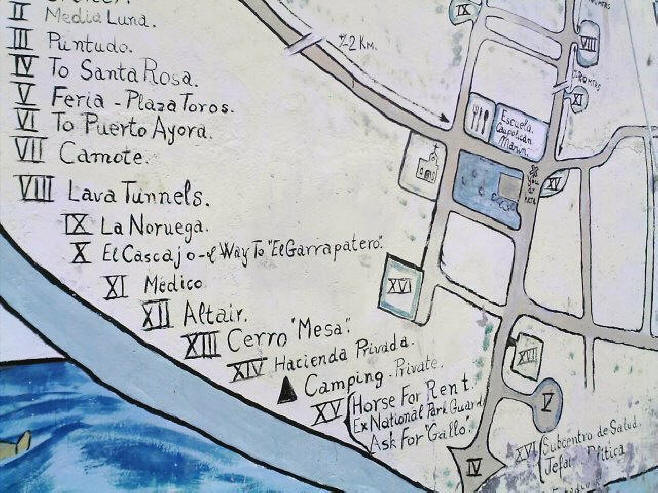 II Media Luna.
III Puntudo.
IV To Santa Rosa.
V Feria - Plaza Toros.
VI To Puerto Ayora.
VII Camote.
VIII Lava Tunnels.
IX La Noruega.
X El Cascajo - Way To "El Garrapatero".
XI Médico
XII Altair.
XIII Cerro "Mesa".
XIV Hacienda Privada.
Camping - Private.
XV Horse For Rent.
Ex National Park Guard
Ask For "Gallo".
XVI Subcentro de Salud.
2 Km.
IX
VIII
XI
Escuela.
Marin.
XV
XVI
XVII
V
IV